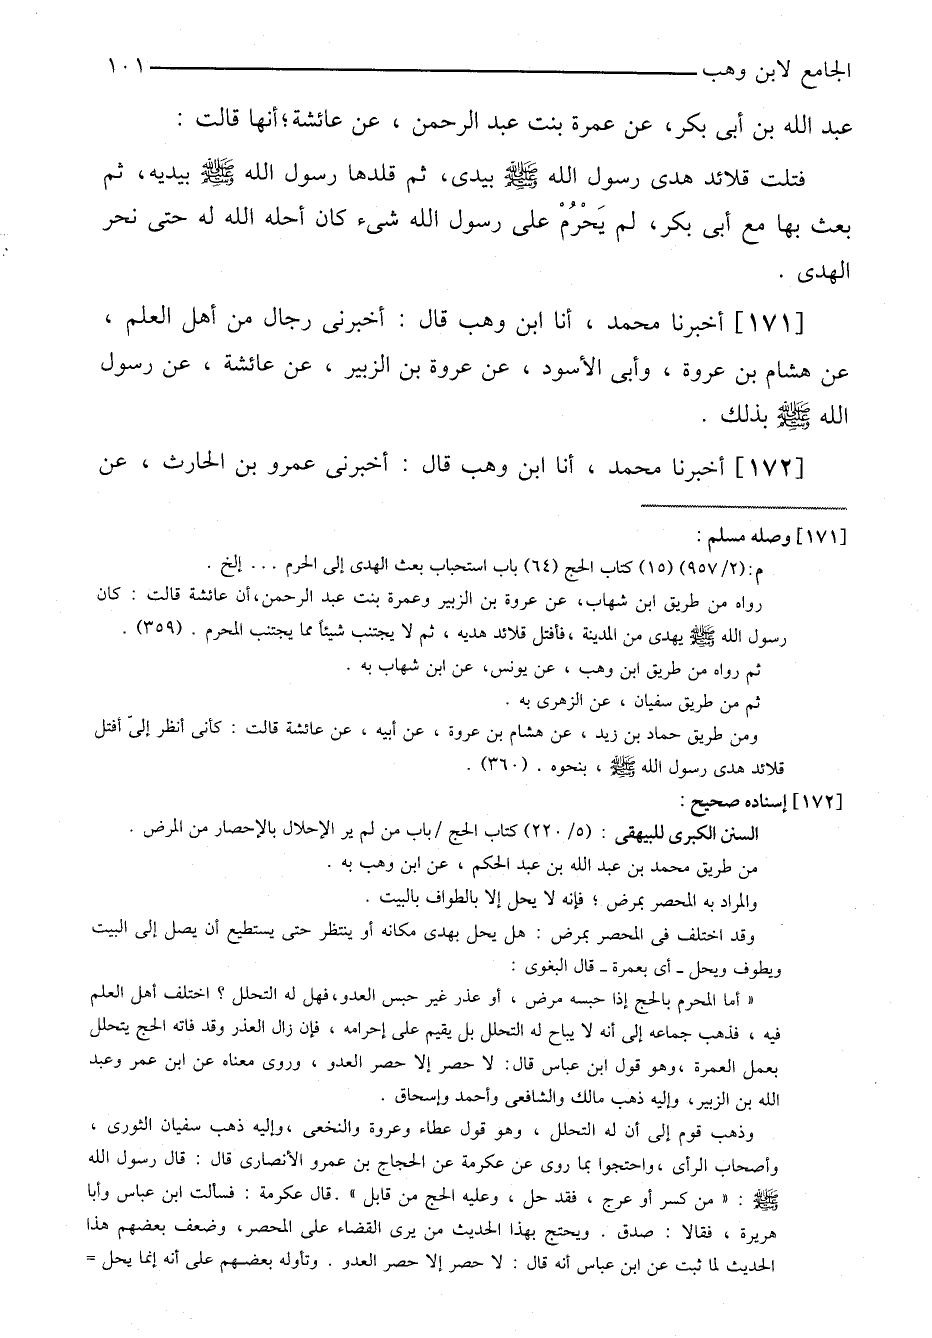 الجامع لابن وهب ١٠١
عبد الله بن أبى بكر، عن عمرة بنت عبد الرحمن ، عن عائشة؛أنها قالت :
فتلت قلائد هدى رسول الله ﷺ بيدى، ثم قلدها رسول الله ﷺ بيديه، ثم
بعث بها مع أبى بكر، لم يَحْرُمْ على رسول الله شىء كان أحله الله له حتى نحر
الهدى .
[١٧١] أخبرنا محمد ، أنا ابن وهب قال : أخبرنى رجال من أهل العلم ،
عن هشام بن عروة ، وأبى الأسود ، عن عروة بن الزبير ، عن عائشة ، عن رسول
الله ﷺ بذلك .
[١٧٢] أخبرنا محمد ، أنا ابن وهب قال : أخبرنى عمرو بن الحارث ، عن
[١٧١] وصله مسلم :
م:(٩٥٧/٢) (١٥) كتاب الحج (٦٤) باب استحباب بعث الهدى إلى الحرم ... إلخ .
رواه من طريق ابن شهاب، عن عروة بن الزبير وعمرة بنت عبد الرحمن،أن عائشة قالت : كان
رسول الله ﷺ يهدى من المدينة ،فأفتل قلائد هديه ، ثم لا يجتنب شيئاً مما يجتنب المحرم . (٣٥٩) .
ثم رواه من طريق ابن وهب ، عن يونس، عن ابن شهاب به .
ثم من طريق سفيان ، عن الزهرى به .
ومن طريق حماد بن زيد ، عن هشام بن عروة ، عن أبيه ، عن عائشة قالت : كأنى أنظر إلىّ أفتل
قلائد هدى رسول الله ﷺ ، بنحوه . (٣٦٠) .
[١٧٢] إسناده صحيح :
السنن الكبرى للبيهقى : (٥/ ٢٢٠) كتاب الحج /باب من لم ير الإحلال بالإحصار من المرض .
من طريق محمد بن عبد الله بن عبد الحكم ، عن ابن وهب به .
والمراد به المحصر بمرض ؛ فإنه لا يحل إلا بالطواف بالبيت .
وقد اختلف فى المحصر بمرض : هل يحل بهدى مكانه أو ينتظر حتى يستطيع أن يصل إلى البيت
ويطوف ويحل ـ أى بعمرة ـ قال البغوى :
« أما المحرم بالحج إذا حبسه مرض ، أو عذر غير حبس العدو،فهل له التحلل ؟ اختلف أهل العلم
فيه ، فذهب جماعه إلى أنه لا يباح له التحلل بل يقيم على إحرامه ، فإن زال العذر وقد فاته الحج يتحلل
بعمل العمرة ،وهو قول ابن عباس قال: لا حصر إلا حصر العدو ، وروى معناه عن ابن عمر وعبد
الله بن الزبير، وإليه ذهب مالك والشافعى وأحمد وإسحاق .
وذهب قوم إلى أن له التحلل ، وهو قول عطاء وعروة والنخعى ،وإليه ذهب سفيان الثورى ،
وأصحاب الرأى ،واحتجوا بما روى عن عكرمة عن الحجاج بن عمرو الأنصارى قال : قال رسول الله
ﷺ : « من كسر أو عرج ، فقد حل ، وعليه الحج من قابل » .قال عكرمة : فسألت ابن عباس وأبا
هريرة ، فقالا : صدق . ويحتج بهذا الحديث من يرى القضاء على المحصر، وضعف بعضهم هذا
الحديث لما ثبت عن ابن عباس أنه قال : لا حصر إلا حصر العدو . وتأوله بعضهم على أنه إنما يحل =